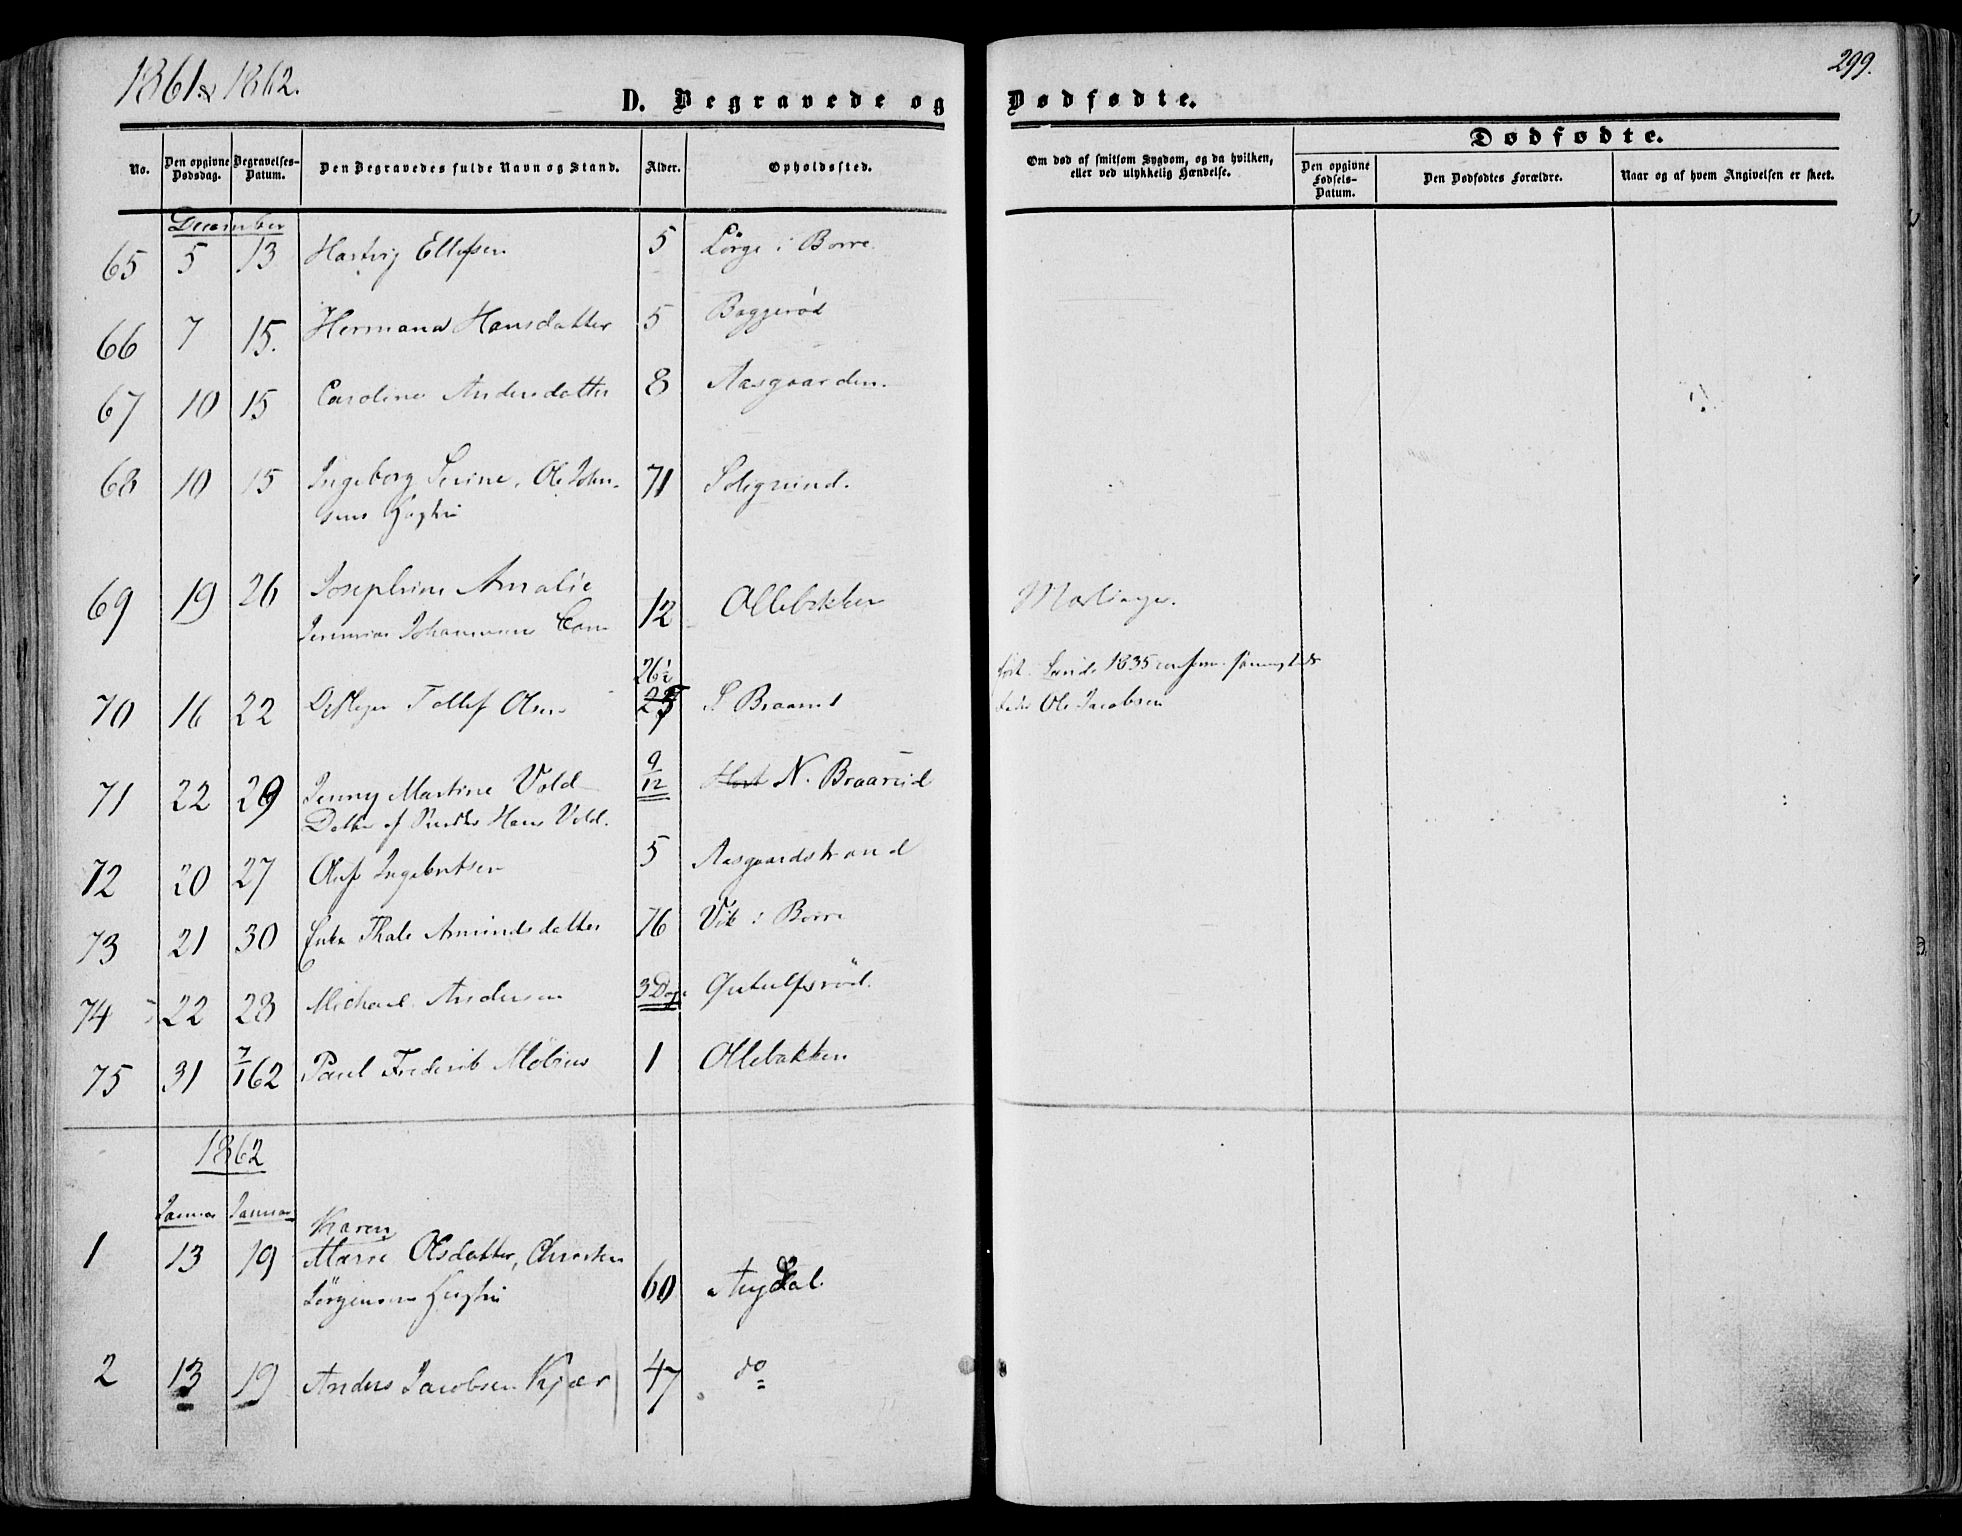 1861 & 1862.
299.
D. Begravede og Dødfødte.
Dødfødte.
No. Den opgivne Dødsdag. Begravelses-Datum. Den Begravedes fulde Navn og Stand. Alder. Opholdssted. Om død af smitsom Sygdom, og da hvilken, eller ved ulykkelig Hændelse. Den opgivne Fødsels-Datum. Den Dødfødtes Forældre. Naar og af hvem Angivelsen er skeet.
December
65 5 13 Hartvig Ellefsen 5 Lørge i Borre.
66 7 15. Hermana Hansdatter 5 Baggerød
67 10 15 Caroline Andersdatter 8 Aasgaarden.
68 10 15 Ingeborg Serine, Ole John- 71 Soligrund.
sens
69 19 26 Josephine Amalie 12 Ollebakken
Johannesens
26½
70 16 22 Tollef Olsen 25 S Braarud
1835
Ole Jacobsen
71 22 29 Jenny Martine Vold 9/12 N. Braarud
Datter af Hans Vold.
72 20 27 Oluf Ingebretsen 5 Aasgaardstrand
73 21 30 Enke Thale Amundsdatter 76 Vik i Borre
74 22 28 Michael Andersen 3 Dage
75 31 7/1 62 Paul Frederik Møbius 1 Ollebakken
1862
Januar Januar
Karen
1 13 19 Marie Olsdatter, Christen
Jørgensens 60
2 13 19 Anders Jacobsen Kjær 47 do